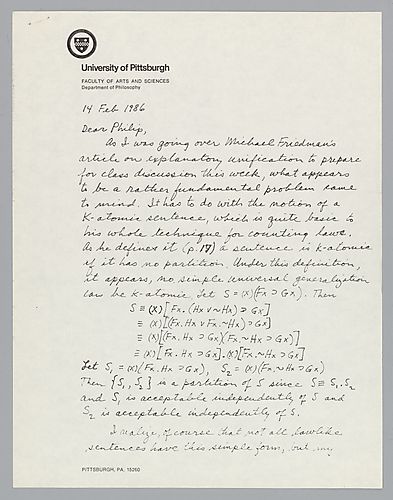 University of Pittsburgh
FACULTY OF ARTS AND SCIENCES
Department of Philosophy
14 Feb 1986
Dear Philip,
As I was going over Michael Friedman's
article on explanatory unification to prepare
for class discussion this week, what appears
to be a rather fundamental problem came
to mind. It has to do with the notion of a
K-atomic sentence, which is quite basic to
his whole technique for counting laws.
As he defines it (p. 17) a sentence is k-atomic
if it has no partition. Under this definition,
it appears, no simple universal generalization
can be K-atomic. Let S = (x)(Fx ⊃ Gx). Then
S ≡ (x)[Fx.(Hx v ~Hx) ⊃ Gx]
≡ (x)[(Fx.Hx v Fx.~Hx) ⊃ Gx]
≡ (x)[(Fx.Hx ⊃ Gx)(Fx.~Hx ⊃ Gx)]
≡ (x)[Fx.Hx ⊃ Gx].(x)[Fx.~Hx ⊃ Gx]
Let S₁ = (x)(Fx.Hx ⊃ Gx), S₂ = (x)(Fx.~Hx ⊃ Gx)
Then {S₁, S₂} is a partition of S since S ≡ S₁.S₂
and S₁ is acceptable independently of S and
S₂ is acceptable independently of S.
I realize, of course that not all lawlike
sentences have this simple form, but my
PITTSBURGH, PA. 15260